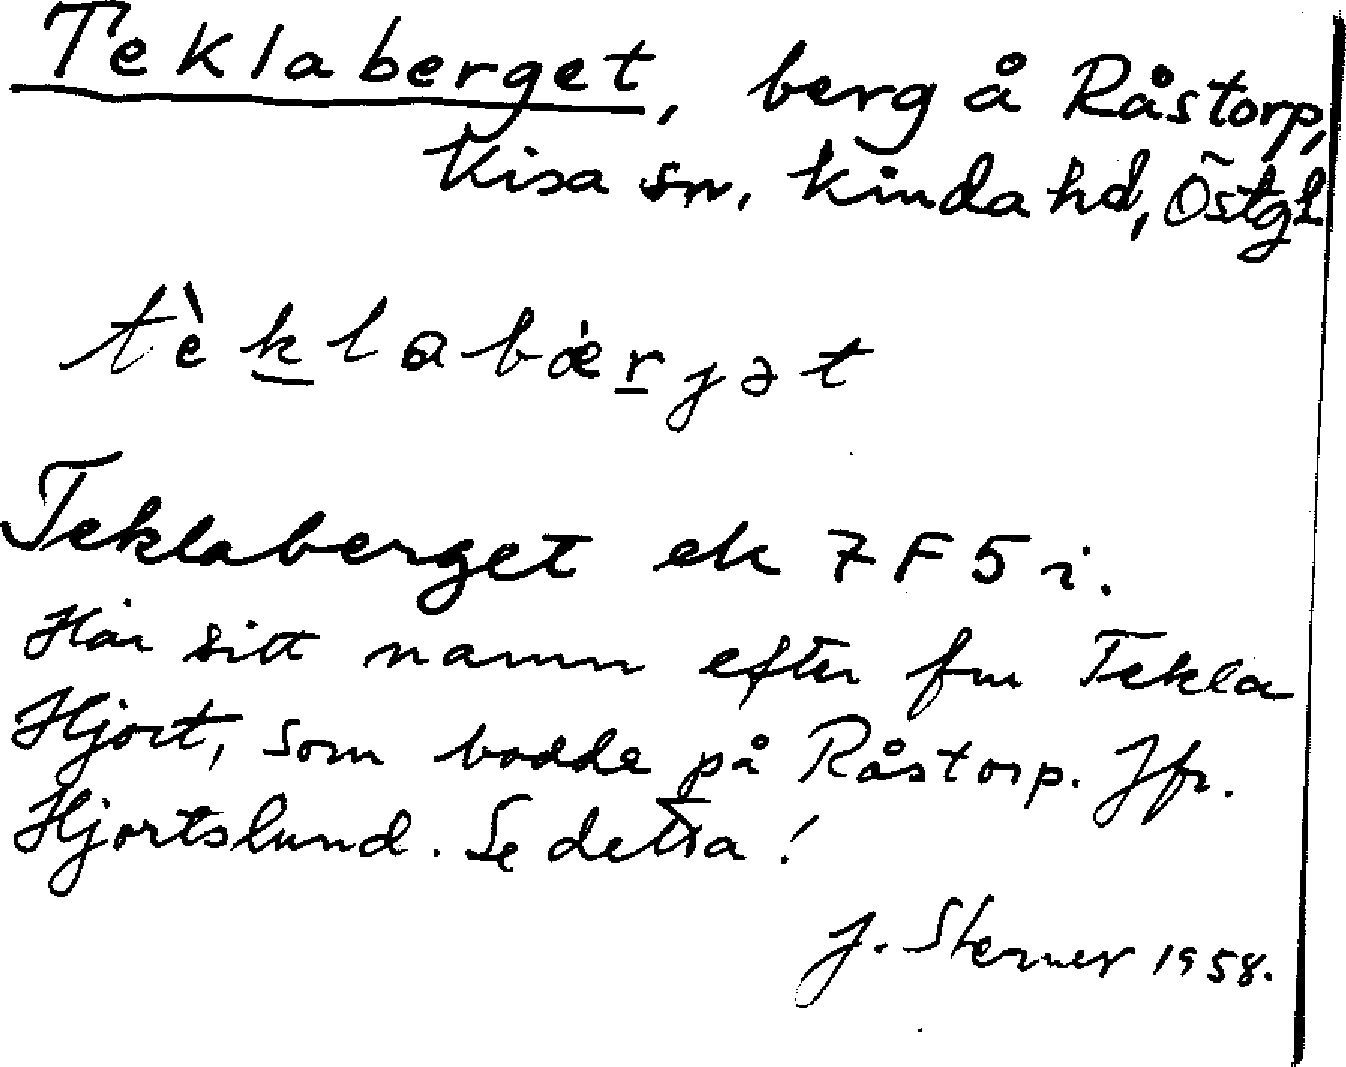 Teklaberget, berg å Råstorp,
Kisa sn, Kinda hd, Östgl
tèklabæ̀rjət
Teklaberget ek 7F5i.
Har sitt namn efter fru Tekla
Hjort, som bodde på Råstorp. Jfr.
Hjortslund. Se detta!
J. Sterner 1958.